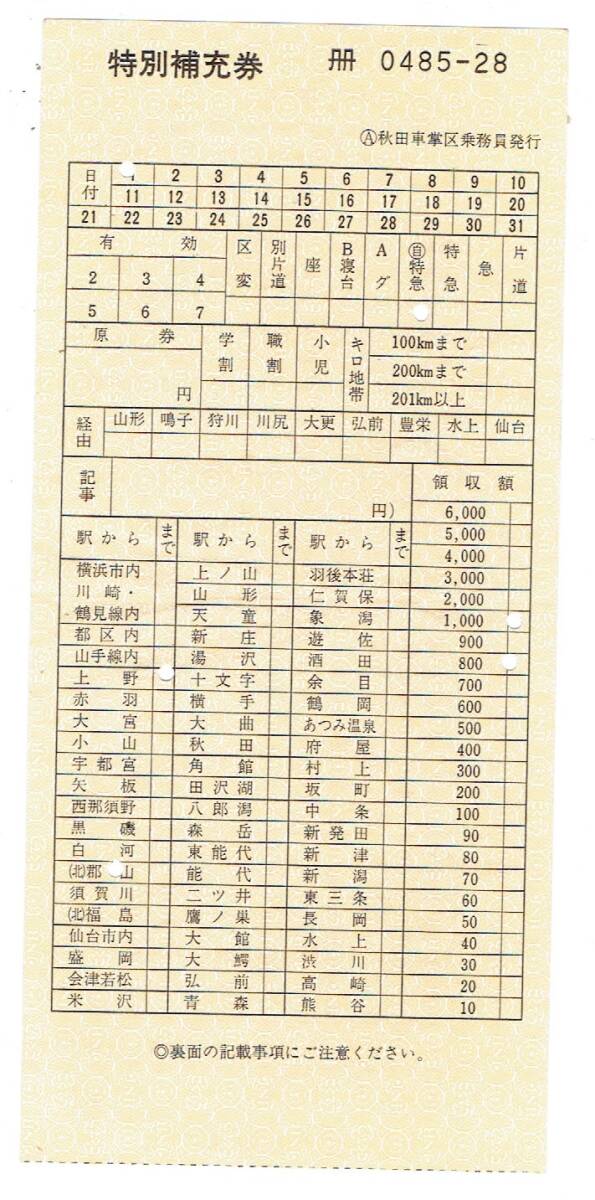 特別補充券 冊 0485-28
Ⓐ秋田車掌区乗務員発行
日付 1 2 3 4 5 6 7 8 9 10
11 12 13 14 15 16 17 18 19 20
21 22 23 24 25 26 27 28 29 30 31
有効 区変 別片道 座 B寝台 Aグ ㊊特急 特急 急 片道
2 3 4
5 6 7
原券 学割 職割 小児 キロ地帯 100kmまで
200kmまで
円 201km以上
経由 山形 鳴子 狩川 川尻 大更 弘前 豊栄 水上 仙台
記事 領収額
円) 6,000
駅から まで 駅から まで 駅から まで 5,000
4,000
横浜市内 上ノ山 羽後本荘 3,000
川崎・ 山形 仁賀保 2,000
鶴見線内 天童 象潟 1,000
都区内 新庄 遊佐 900
山手線内 湯沢 酒田 800
上野 十文字 余目 700
赤羽 横手 鶴岡 600
大宮 大曲 あつみ温泉 500
小山 秋田 府屋 400
宇都宮 角館 村上 300
矢板 田沢湖 坂町 200
西那須野 八郎潟 中条 100
黒磯 森岳 新発田 90
白河 東能代 新津 80
㈰郡山 能代 新潟 70
須賀川 二ツ井 東三条 60
(北)福島 鷹ノ巣 長岡 50
仙台市内 大館 水上 40
盛岡 大鰐 渋川 30
会津若松 弘前 高崎 20
米沢 青森 熊谷 10
◎裏面の記載事項にご注意ください。